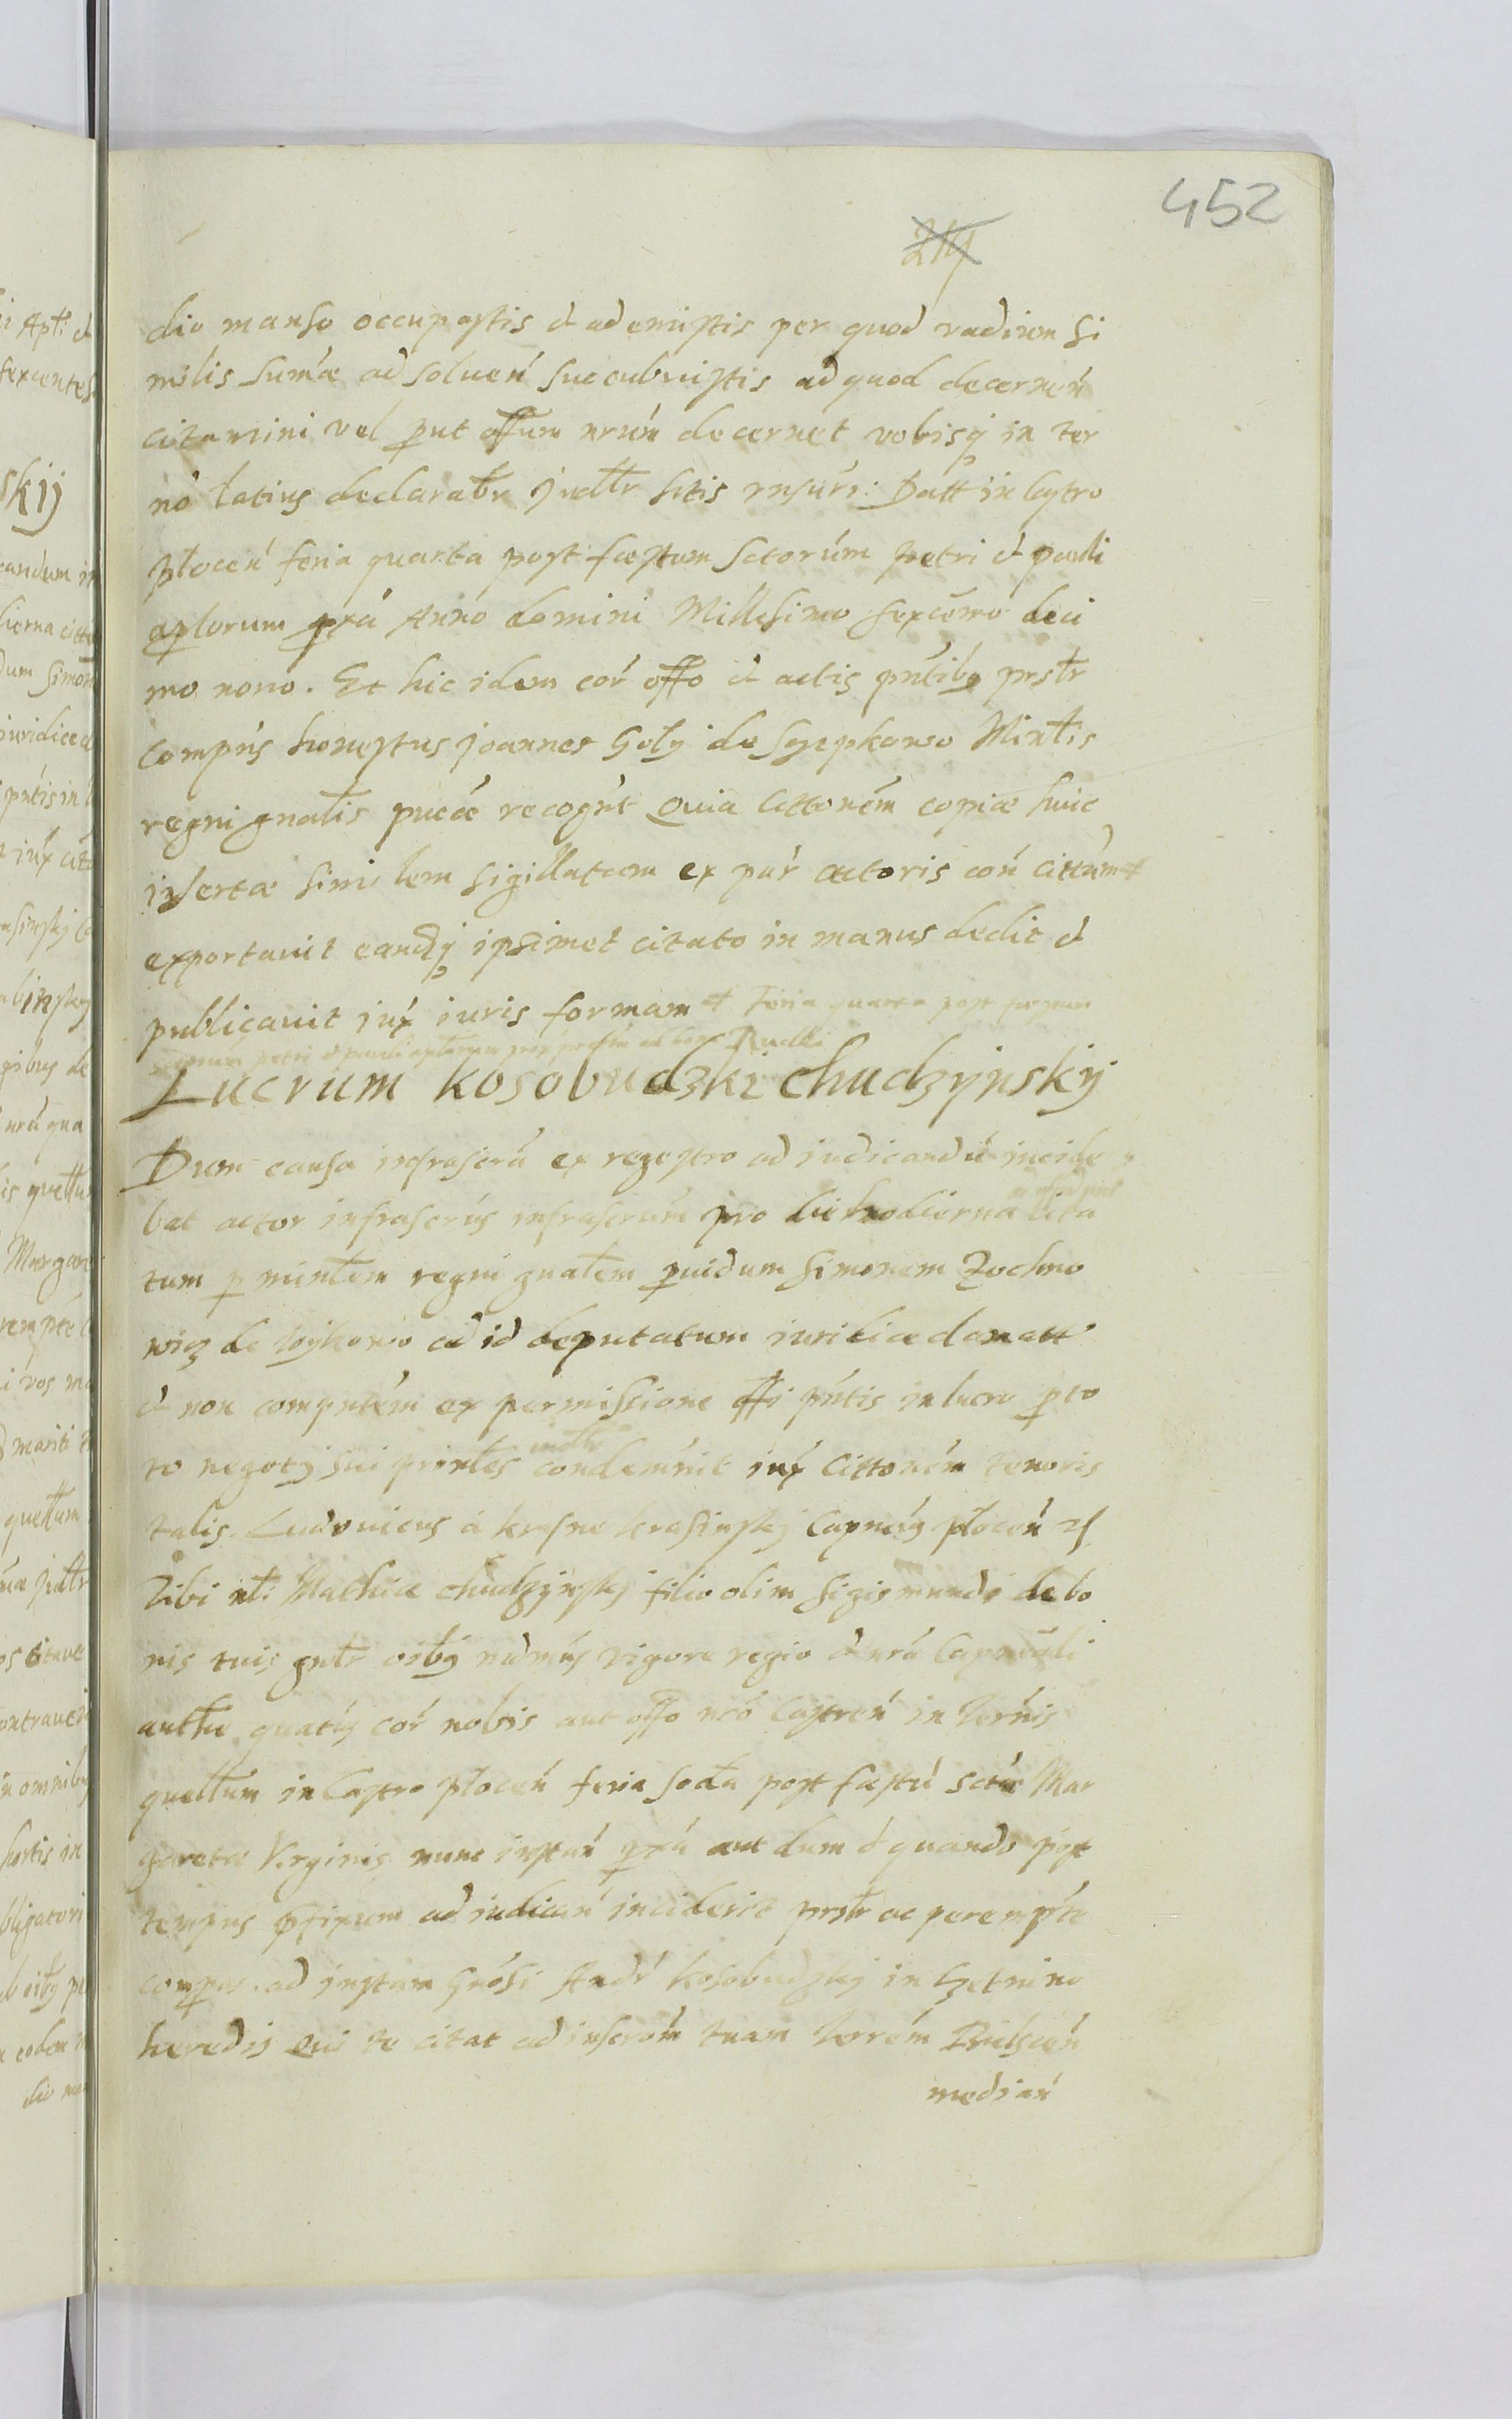 452
219
dio manso occupastis et ademistis per quod vadium si
milis sumae ad soluen succubuistis ad quod decernen
citamini vel put offum nrum decernet vobisq in ter
no latius declarabr judlr sitis rnsuri: Datt in Castro
plocen feria quarta post festum Sctorum Petri et pauli
aplorum pxa Anno domini Millesimo sexcemo deci
mo nono. Et hic idem cor offo et actis pntibq prslr
comprns honestus joannes Goly de Szczepkowo Minlis
regni gnalis pucae recogt Quia Cittonem copiae huic
insertae similem sigillatam ex par actoris con cittum #
exportauit eandq ipsimet citato in manus dedit et
publicauit jux iuris formam # Feria quarta post festum
Sctorum petri et pauli aplorum prox pretm ad bona Rudki
Lucrum Kosobudzki Chudzynskij
Dum causa infrascra ex regestro ad iudicandu incide
bat actor infrascrus infrascrum pro die hodierna cita
tum p minlem regni gnalem puidum Simonem Zochno
wicz de Wykowo ad id deputatum iuridice clamatt
et non comprntem ex permissione offi pntis in lucro p to
to negoty sui prinles condemnit jux Cittonem tenoris
talis. Ludouicus a krasne krasinskj Capneus plocen &c
Tibi nli Mathiae Chudzijnskj filio olim Sigismundi de bo
nis tuis gnlr oibq mdmus rigore regio et nra Capneali
autlte quatq cor nobis aut offo nro Castren in Ternis
quellum in Castro plocen feria scda post festu sctae Mar
garetae Virginis nunc instan pxa aut dum et quando post
tempus pfixum ad iudican inciderit prslr ac perempte
compas. ad instam Gnosi Andr kosobudzkj in
heredis Qui te citat ad inscrom tuam Terrem
median